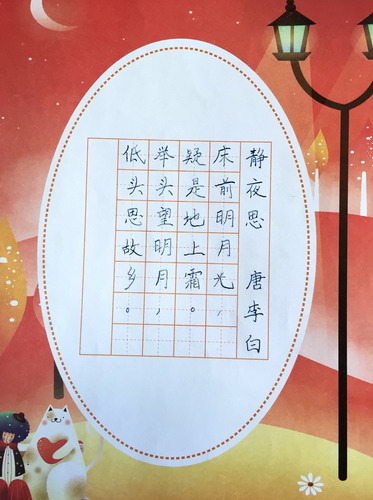 静夜思 唐李白
床前明月光，
疑是地上霜。
举头望明月，
低头思故乡。